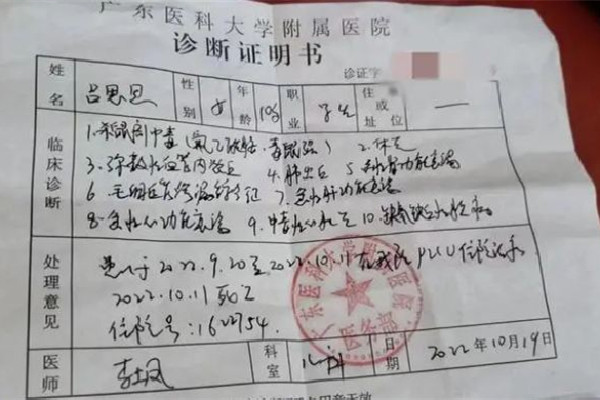 广东医科大学附属医院
诊断证明书
诊证字
姓名 吕思恩 性别 女 年龄 10岁 职业 学生 住或址单位 —
临床诊断
1. 杀鼠剂中毒(氟乙酰胺、毒鼠强) 2. 休克
3. 弥散性血管内凝血 4. 肺出血 5. 急性肾功能衰竭
6. 毛细血管渗漏综合征 7. 急性肝功能衰竭
8. 急性心功能衰竭 9. 中毒性心肌炎 10. 缺氧缺血性脑病
处理意见
患儿于2022.9.20至2022.10.11在我院PICU住院
2022.10.11死亡
住院号:1622754.
广东医科大学附属医院
医务部
医师 科室 儿科 日期 2022年10月19日